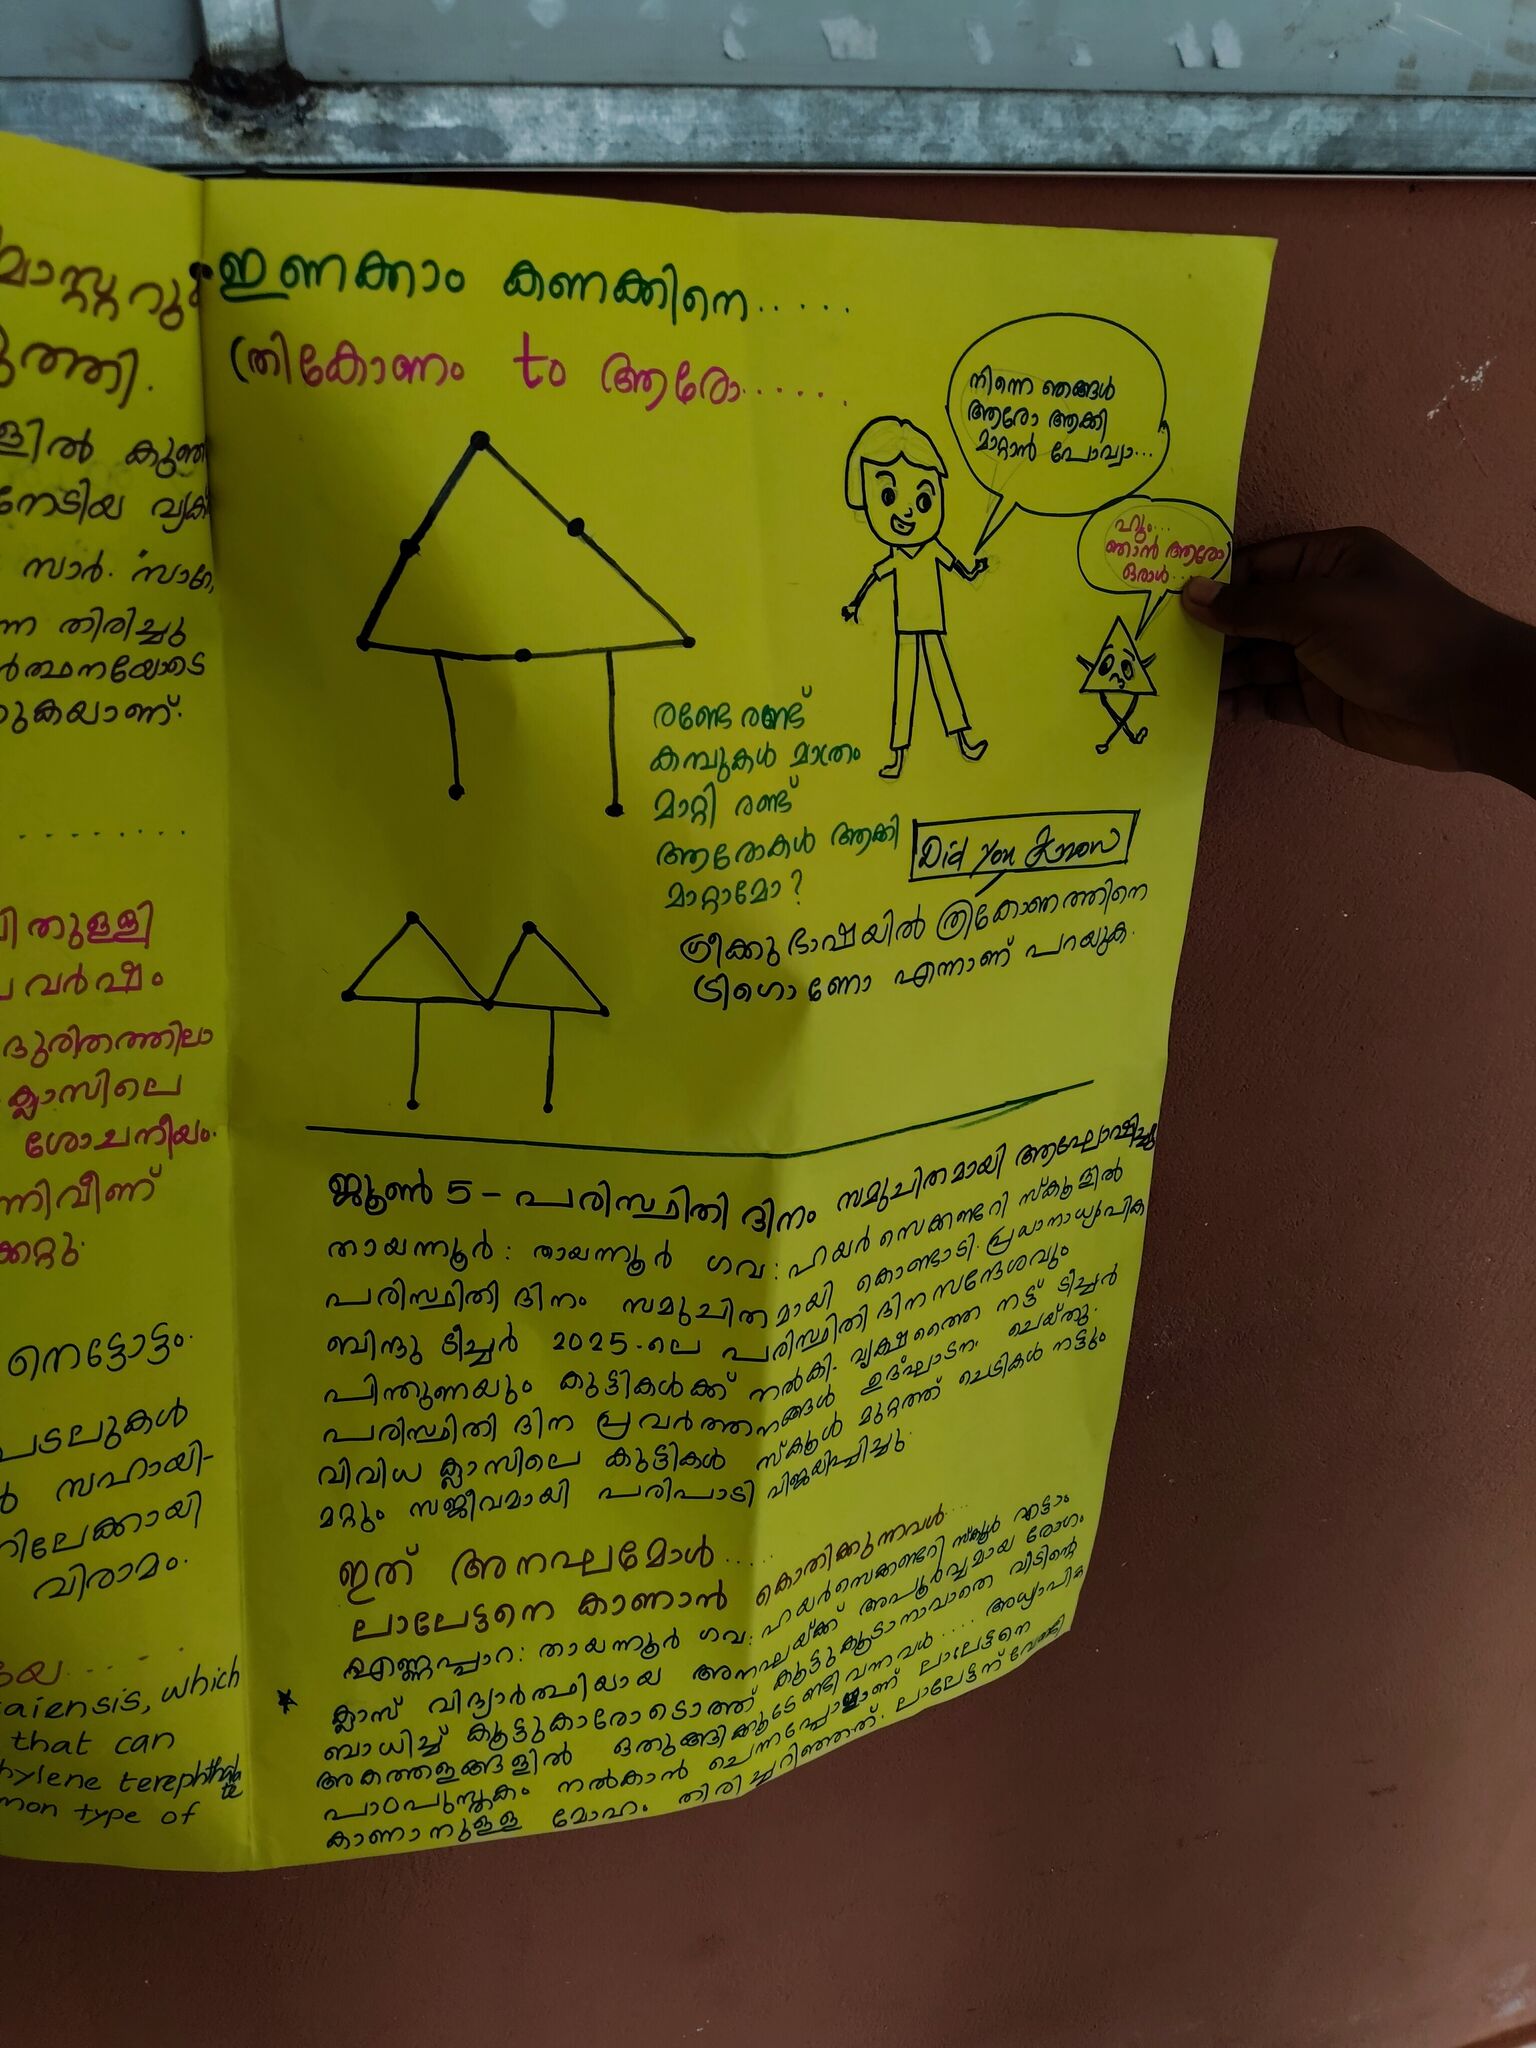 ഇണക്കാം കണക്കിനെ.....
ത്രികോണം to ആരോ......
നിന്നെ ഞങ്ങൾ
ആരോ ആക്കി
മാറ്റാൻ പോവ്വാ...
ഹും...
ഞാൻ ആരോ
ഒരാൾ...
രണ്ടേ രണ്ട്
കമ്പുകൾ മാത്രം
മാറ്റി രണ്ട്
ആരോകൾ ആക്കി
മാറ്റാമോ?
Did you know
ഗ്രീക്കു ഭാഷയിൽ ത്രികോണത്തിനെ
ട്രിഗൊണോ എന്നാണ് പറയുക.
ജൂൺ 5 - പരിസ്ഥിതി ദിനം സമുചിതമായി ആഘോഷിച്ചു
തായന്നൂർ: തായന്നൂർ ഗവ: ഹയർ സെക്കണ്ടറി സ്കൂളിൽ
പരിസ്ഥിതി ദിനം സമുചിതമായി കൊണ്ടാടി. പ്രധാനാധ്യാപിക
ബിന്ദു ടീച്ചർ 2025-ലെ പരിസ്ഥിതി ദിന സന്ദേശവും
പിന്തുണയും കുട്ടികൾക്ക് നൽകി. വൃക്ഷത്തൈ നട്ട് ടീച്ചർ
പരിസ്ഥിതി ദിന പ്രവർത്തനങ്ങൾ ഉദ്ഘാടനം ചെയ്തു.
വിവിധ ക്ലാസിലെ കുട്ടികൾ സ്കൂൾ മുറ്റത്ത് ചെടികൾ നട്ടും
മറ്റും സജീവമായി പരിപാടി വിജയിപ്പിച്ചു.
ഇത് അനഘമോൾ.....
ലാലേട്ടനെ കാണാൻ കൊതിക്കുന്നവൾ....
എണ്ണപ്പാറ: തായന്നൂർ ഗവ: ഹയർസെക്കണ്ടറി സ്കൂൾ എട്ടാം
ക്ലാസ് വിദ്യാർത്ഥിയായ അനഘയ്ക്ക് അപൂർവ്വമായ രോഗം
ബാധിച്ച് കൂട്ടുകാരോടൊത്ത് കൂട്ടുകൂടാനാവാതെ വീടിന്റെ
അകത്തളങ്ങളിൽ ഒതുങ്ങിക്കൂടേണ്ടി വന്നവൾ..... അധ്യാപിക
പാഠപുസ്തകം നൽകാൻ ചെന്നപ്പോളാണ് ലാലേട്ടനെ
കാണാനുള്ള മോഹം തിരിച്ചറിഞ്ഞത്. ലാലേട്ടന് വേണ്ടി
ത്തി.
ളിൽ
നേടിയ
സാർ.
തിരിച്ചു
തുള്ളി
വർഷം
ക്ലാസിലെ
ശോചനീയം.
നെട്ടോട്ടം.
പടലുകൾ
സഹായി-
വിരാമം.
which
that can
type of